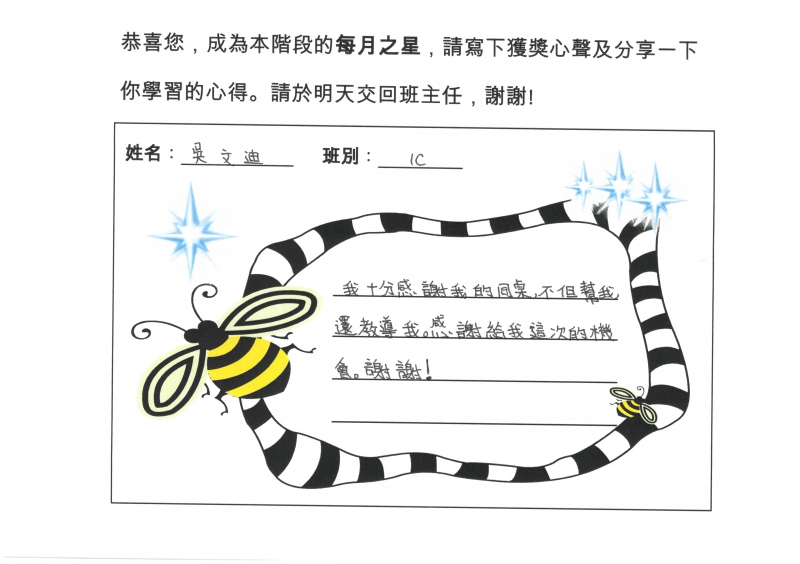 恭喜您，成為本階段的每月之星，請寫下獲獎心聲及分享一下
你學習的心得。請於明天交回班主任，謝謝!
姓名：吳文迪 班別：1C
我十分感謝我的同桌，不但幫我，
還教導我。感謝給我這次的機
會。謝謝！